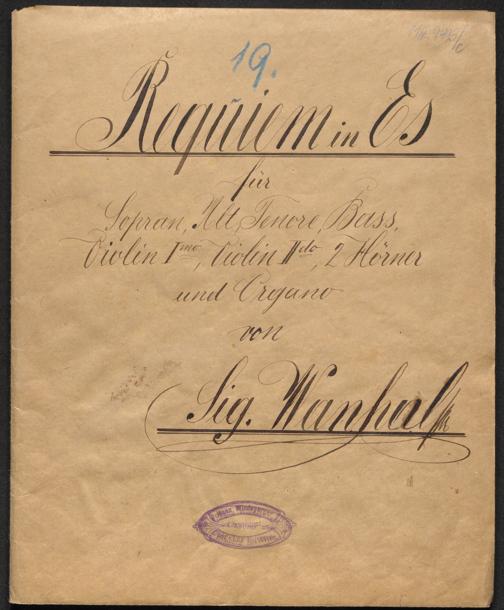 19.
Requiem in Es
für
Sopran, Alt, Tenore, Bass,
Violin Imo, Violin IIdo, 2 Hörner
und Organo
von
Sig. Wanhal